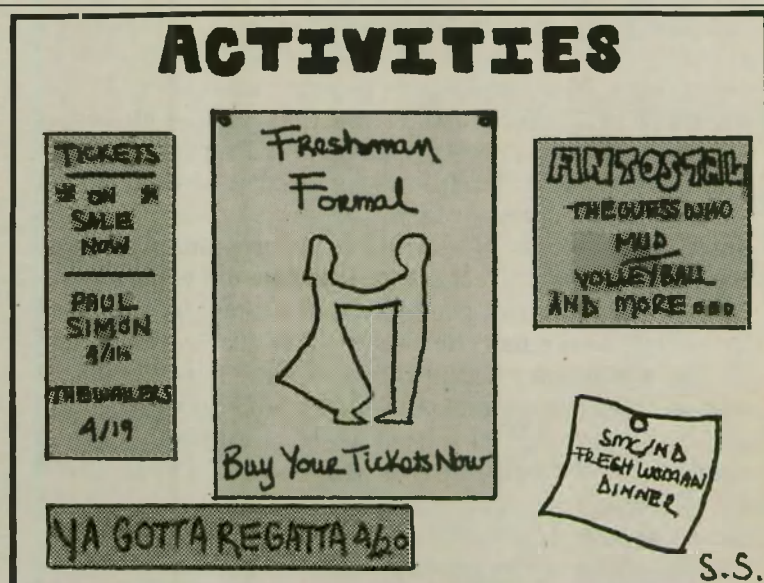 ACTIVITIES
TICKETS
* ON *
SALE
NOW
PAUL
SIMON
THE WAILERS
4/19
Freshman
Formal
Buy Your Tickets Now
ANTOSTAL
THE GUESS WHO
MUD
VOLLEYBALL
AND MORE...
SMC/ND
FRESHWOMAN
DINNER
YA GOTTA REGATTA 4/20
S.S.